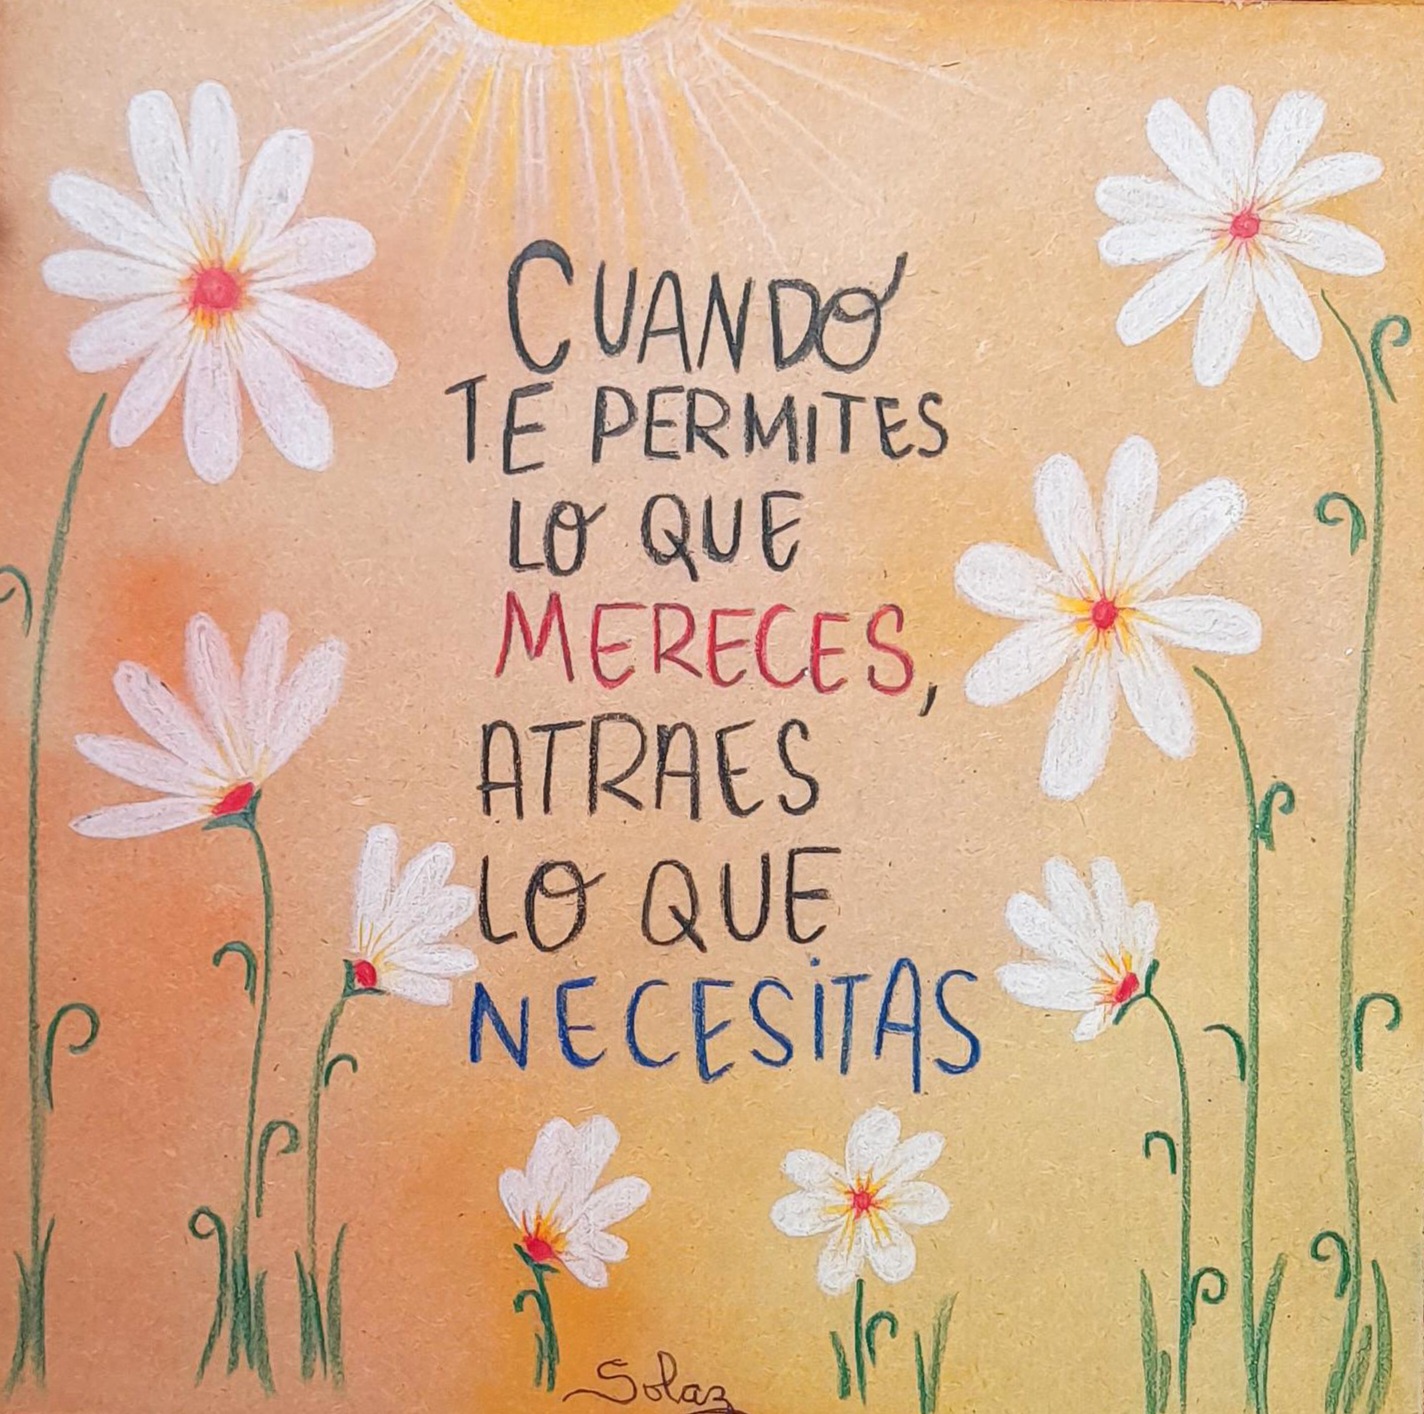 CUANDO
TE PERMITES
LO QUE
MERECES,
ATRAES
LO QUE
NECESITAS
Solaz